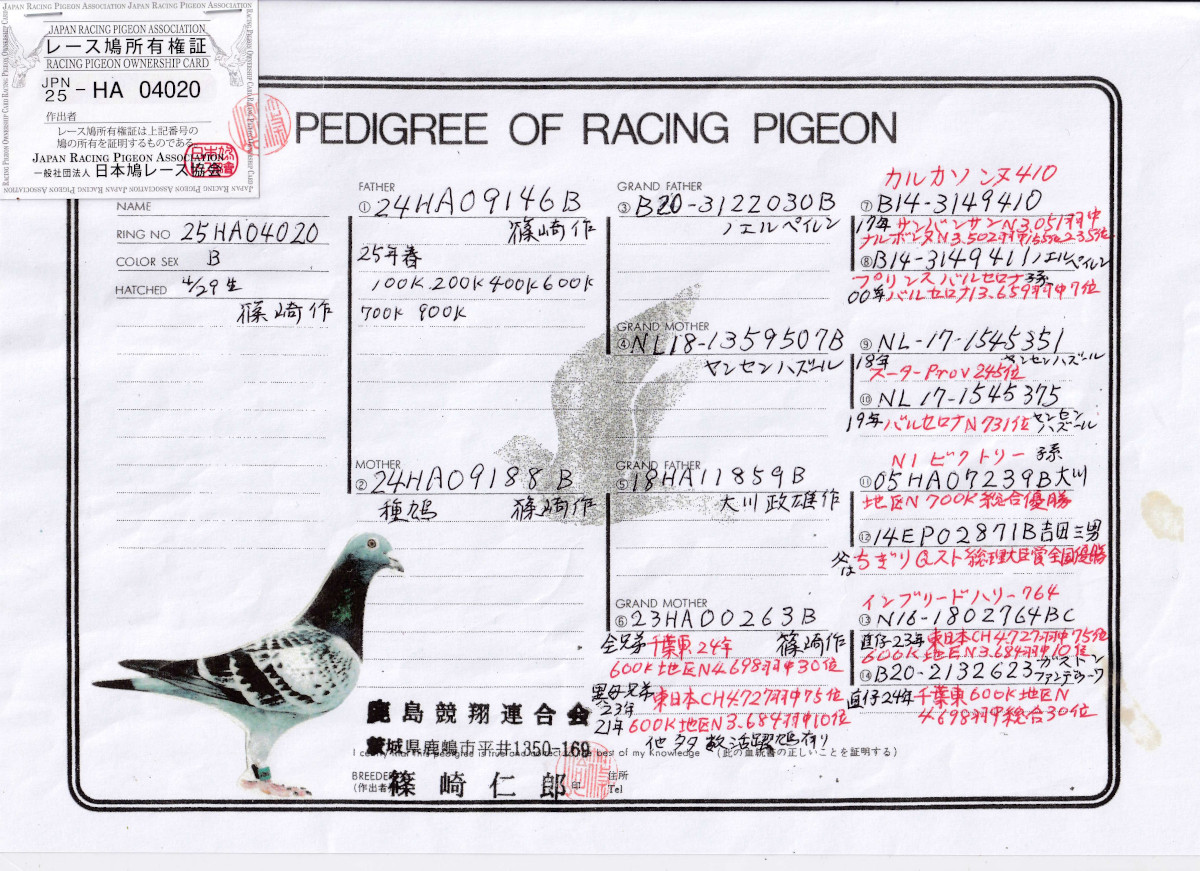 JAPAN RACING PIGEON ASSOCIATION JAPAN RACING PIGEON ASSOCIATION
JAPAN RACING PIGEON ASSOCIATION
レース鳩所有権証
RACING PIGEON OWNERSHIP CARD
JPN
25 - HA 04020
作出者
レース鳩所有権証は上記番号の
鳩の所有を証明するものである
JAPAN RACING PIGEON ASSOCIATION
一般社団法人 日本鳩レース協会
PEDIGREE OF RACING PIGEON
NAME
RING NO 25HA04020
COLOR SEX B
HATCHED 4/29生
篠崎作
FATHER
① 24HA09146B
篠崎作
25年春
100K.200K400K600K
700K 900K
MOTHER
② 24HA09188B
種鳩 篠崎作
GRAND FATHER
③ B20-3122030B
ノエルペイレン
GRAND MOTHER
④ NL18-1359507B
ヤンセンハズール
GRAND FATHER
⑤ 18HA11859B
大川政雄作
GRAND MOTHER
⑥ 23HA00263B
全兄弟千葉東24年 篠崎作
600K地区N4.698羽中30位
異母兄弟 東日本CH4.727羽中75位
23年
21年600K地区N3.684羽中10位
他多数活躍鳩有り
カルカソンヌ410
⑦ B14-3149410
17年サンバンサンN3.051羽中
ナルボンヌN3.502羽中155位235位
⑧ B14-3149411ノエルペイレン
プリンスバルセロナ子孫
00年バルセロナ13.659羽中7位
⑨ NL-17-1545351
18年 ヤンセンハズール
スーターProv245位
⑩ NL17-1545375
19年バルセロナN731位 ヤンセンハズール
N1ビクトリー子孫
⑪ 05HA07239B大川
地区N700K総合優勝
⑫ 14EP02871B吉田三男
父はちぎりQスト総理大臣賞全国優勝
インブリードハリー764
⑬ N16-1802764BC
直仔23年東日本CH4.727羽中75位
600K地区N3.684羽中10位
⑭ B20-2132623ガストンファンデワーワ
直仔24年千葉東600K地区N
4.698羽中総合30位
鹿島競翔連合会
茨城県鹿嶋市平井1350-169
best of my knowledge (此の血統書の正しいことを証明する)
BREEDER
(作出者)
篠崎仁郎
印
住所
Tel